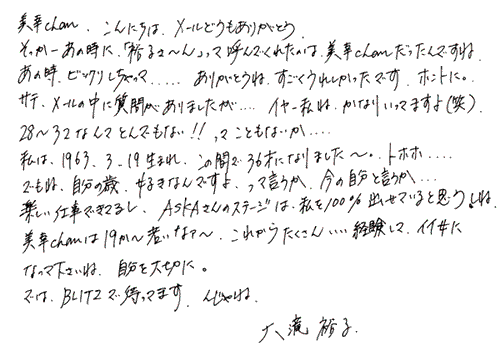 美幸cham、こんにちは、メールどうもありがとう。
そっかーあの時に、「裕子さ〜ん」って呼んでくれたのは、美幸chamだったんですね。
あの時、ビックリしちゃって…… ありがとうね、すごくうれしかったです、ホントに。
サテ、メールの中に質問がありましたが…、イヤー私ね、かなりいってますよ(笑)
28〜32なんてとんでもない!! ってこともないか‥‥
私は、1963. 3. 19生まれ、この間で36才になりました〜。トホホ‥‥
でもね、自分の歳、好きなんですよ、って言うか、今の自分と言うか…
楽しい仕事できてるし、ASKAさんのステージは、私を100%出せていると思うしね。
美幸chamは19か〜若いなぁ〜、これからたくさん‥‥経験して、イイ女に
なって下さいね、自分を大切に。
では、BLITZで待ってます、んじゃね、
大滝裕子